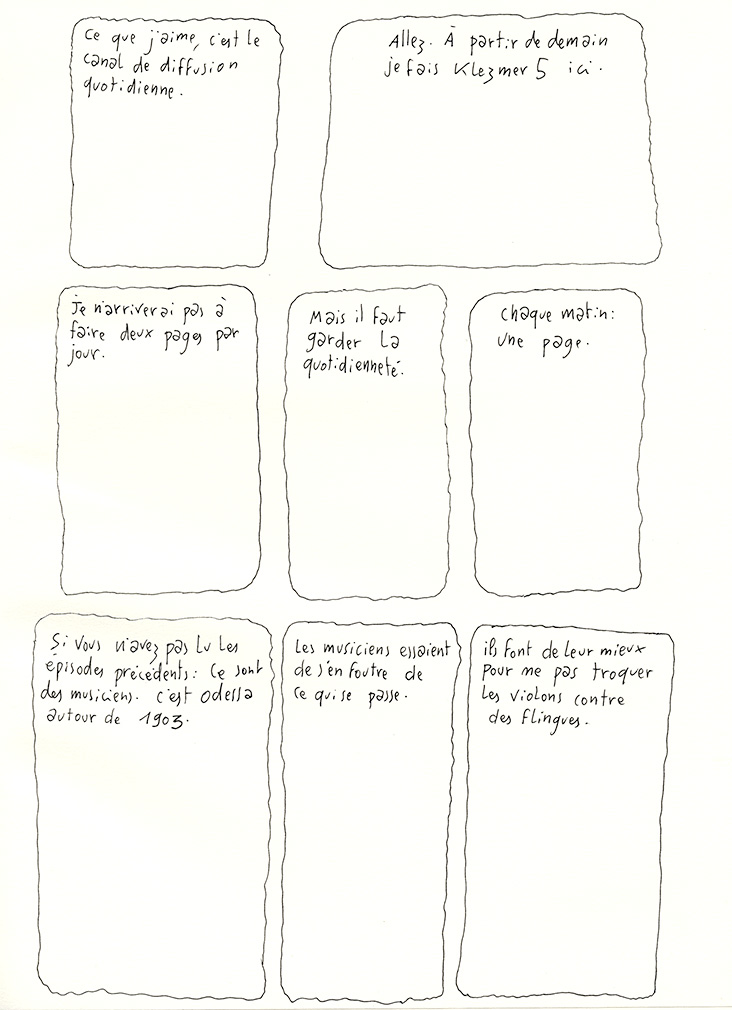 Ce que j'aime, c'est le
canal de diffusion
quotidienne.
Allez. À partir de demain
je fais Klezmer 5 ici.
Je n'arriverai pas à
faire deux pages par
jour.
Mais il faut
garder la
quotidienneté.
Chaque matin:
une page.
Si vous n'avez pas lu les
épisodes précédents: Ce sont
des musiciens. c'est Odessa
autour de 1903.
Les musiciens essaient
de s'en foutre de
ce qui se passe.
ils font de leur mieux
pour me pas troquer
les violons contre
des flingues.